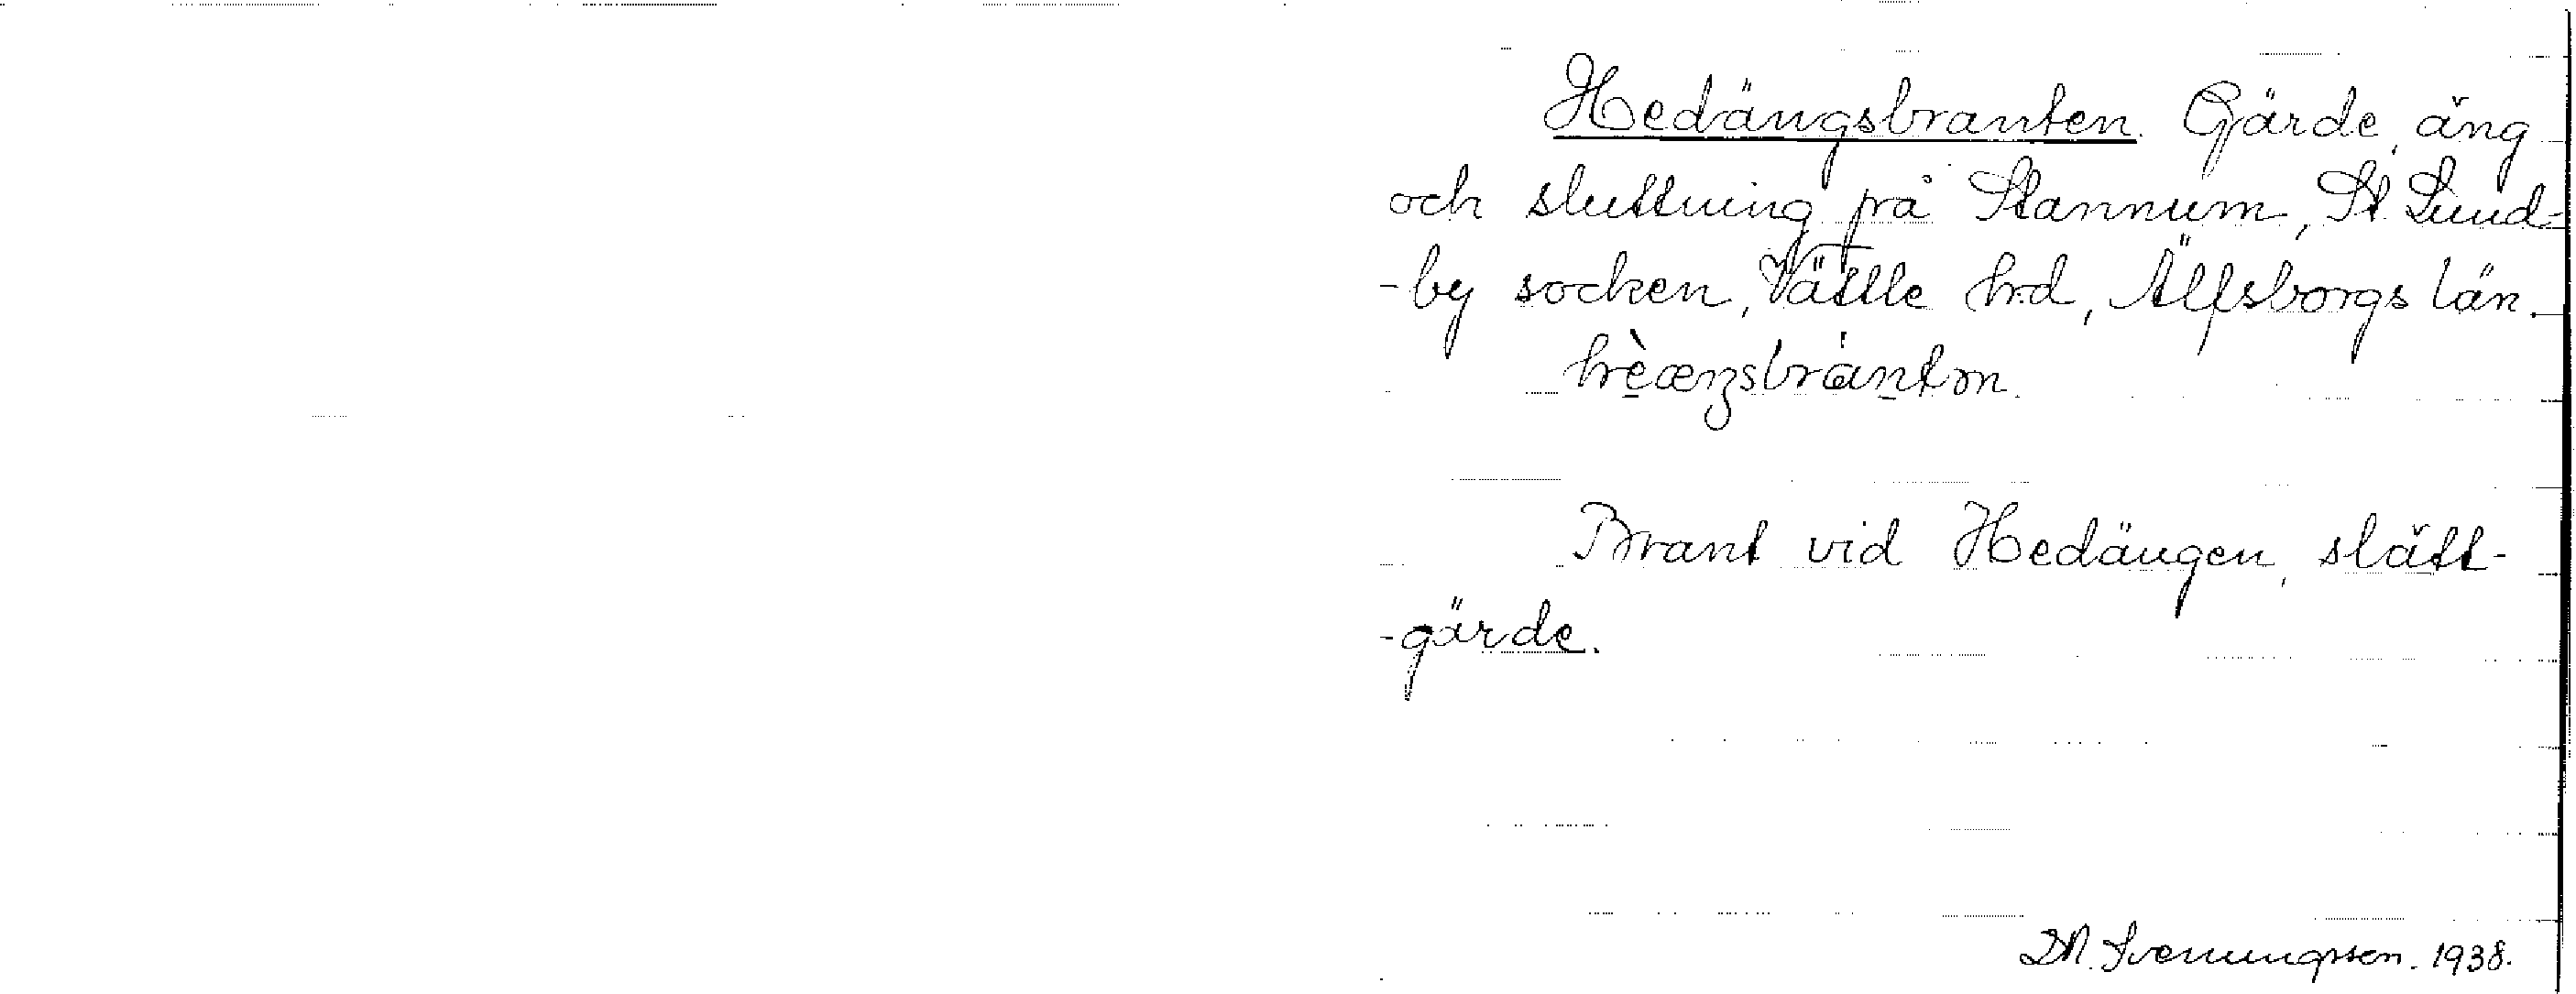 Hedängsbranten. Gärde, äng
och sluttning på Stannum, St. Lund-
-by socken, Vättle hd, Älfsborgs län.
Brant vid Hedängen, slått-
-gärde.
Svenungsson. 1938.